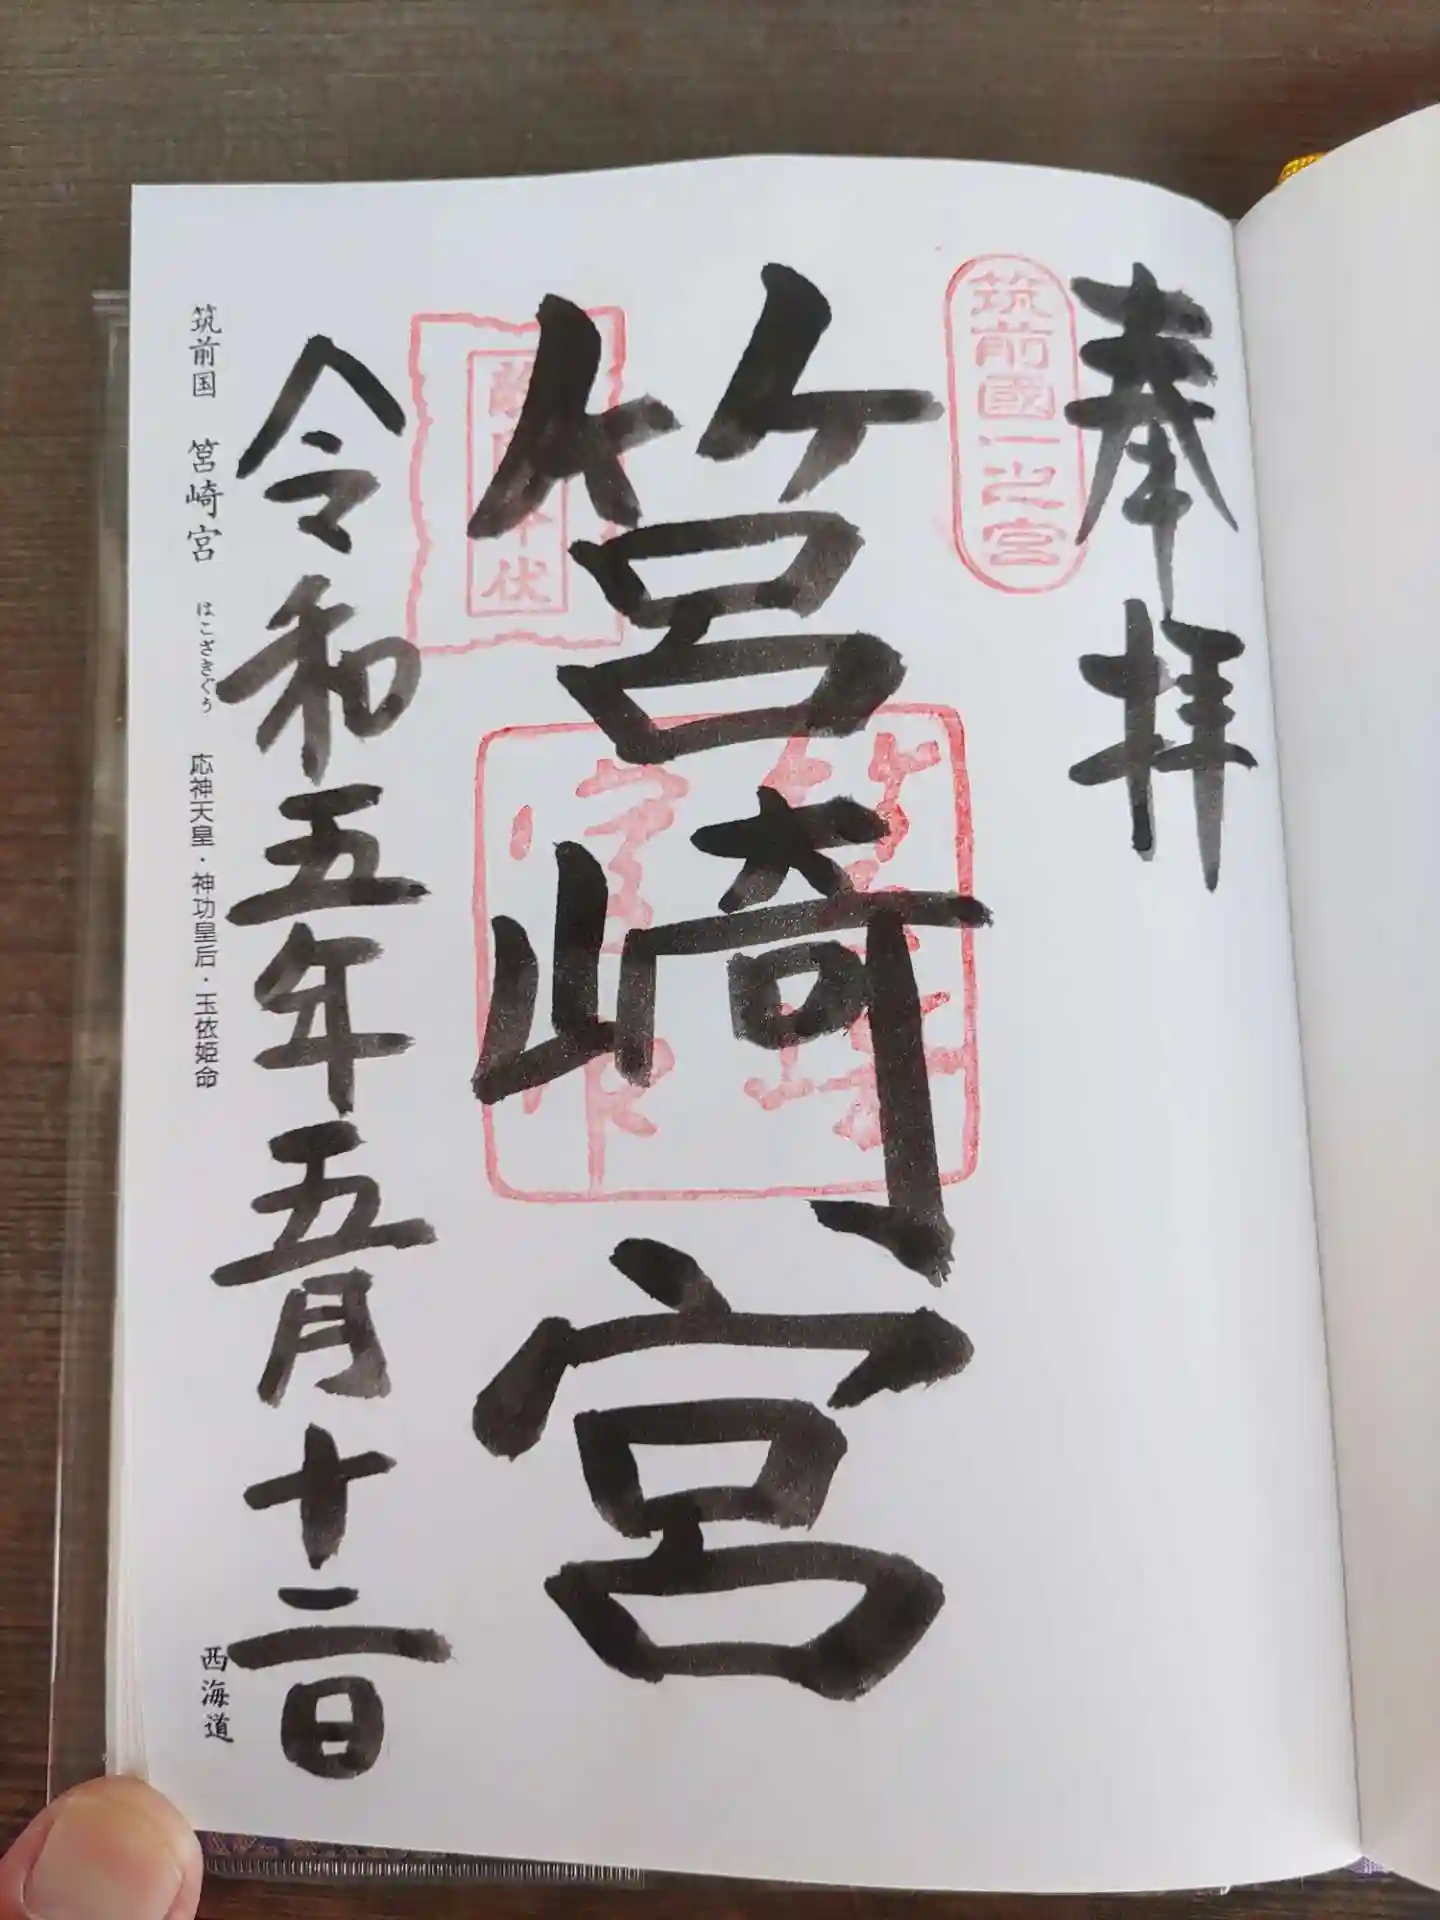 奉拝
筑前國一之宮
筥崎宮
伏
令和五年五月十二日
筑前国 筥崎宮 はこざきぐう 応神天皇・神功皇后・玉依姫命 西海道